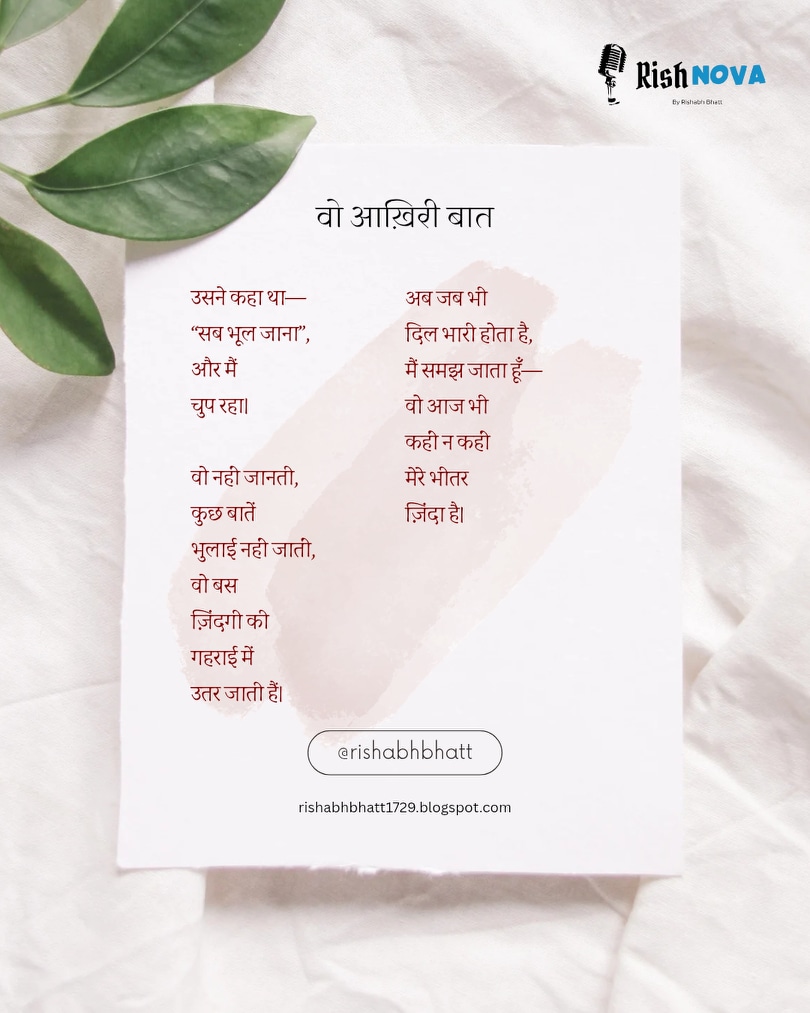 Rish NOVA
By Rishabh Bhatt
वो आख़िरी बात
उसने कहा था—
“सब भूल जाना”,
और मैं
चुप रहा।
वो नहीं जानती,
कुछ बातें
भुलाई नहीं जातीं,
वो बस
ज़िंदगी की
गहराई में
उतर जाती हैं।
अब जब भी
दिल भारी होता है,
मैं समझ जाता हूँ—
वो आज भी
कहीं न कहीं
मेरे भीतर
ज़िंदा है।
@rishabhbhatt
rishabhbhatt1729.blogspot.com